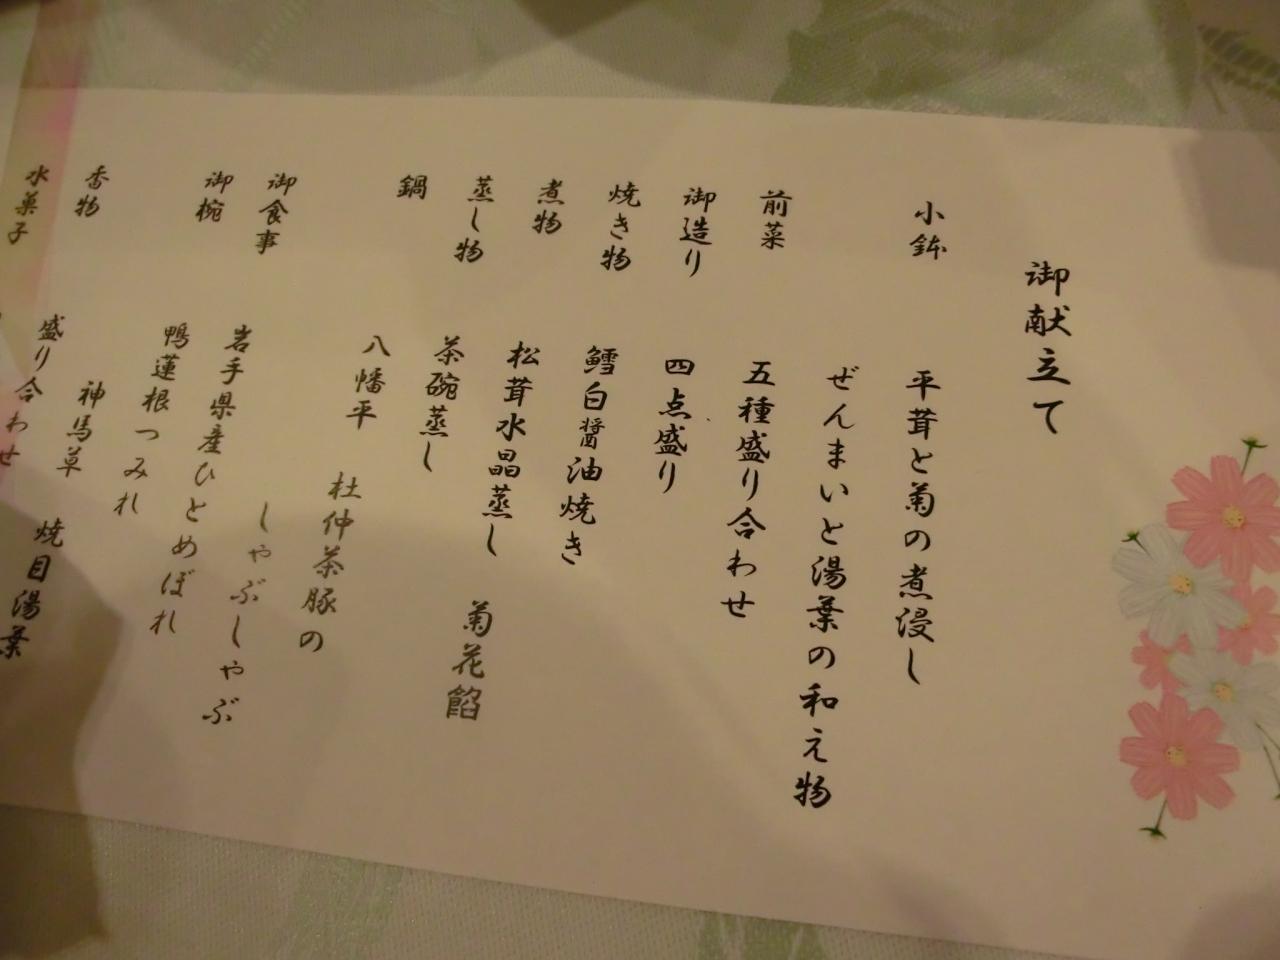 御献立て
小鉢 平茸と菊の煮浸し
ぜんまいと湯葉の和え物
前菜 五種盛り合わせ
御造り 四点盛り
焼き物 鱈白醤油焼き
煮物 松茸水晶蒸し 菊花餡
蒸し物 茶碗蒸し
鍋 八幡平 杜仲茶豚の
しゃぶしゃぶ
御食事 岩手県産ひとめぼれ
御椀 鴨蓮根つみれ
神馬草 焼目湯葉
香物 盛り合わせ
水菓子